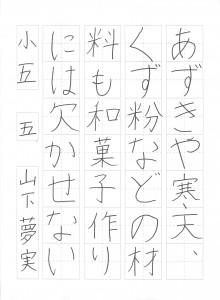 あずきや寒天、
くず粉などの材
料も和菓子作り
には欠かせない
小五 五 山下夢実